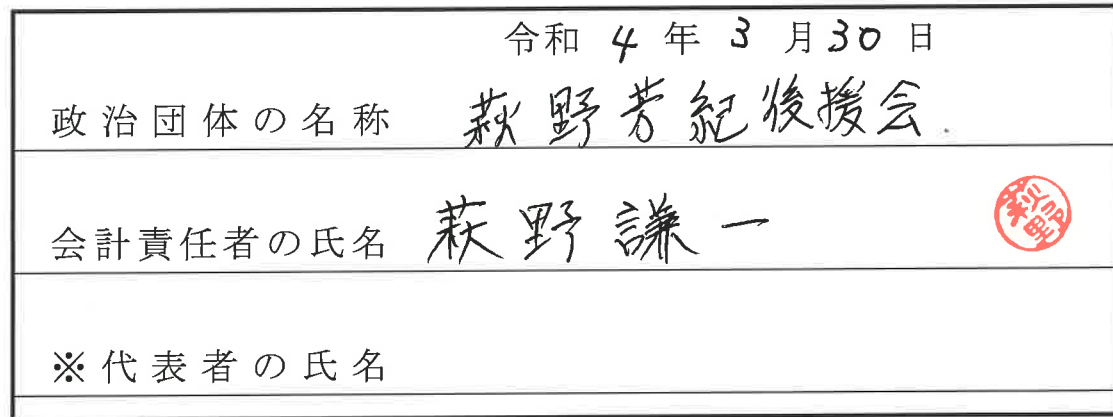 令和 4 年 3 月 30 日
政治団体の名称 萩野芳紀後援会
会計責任者の氏名 萩野謙一 萩野
※代表者の氏名